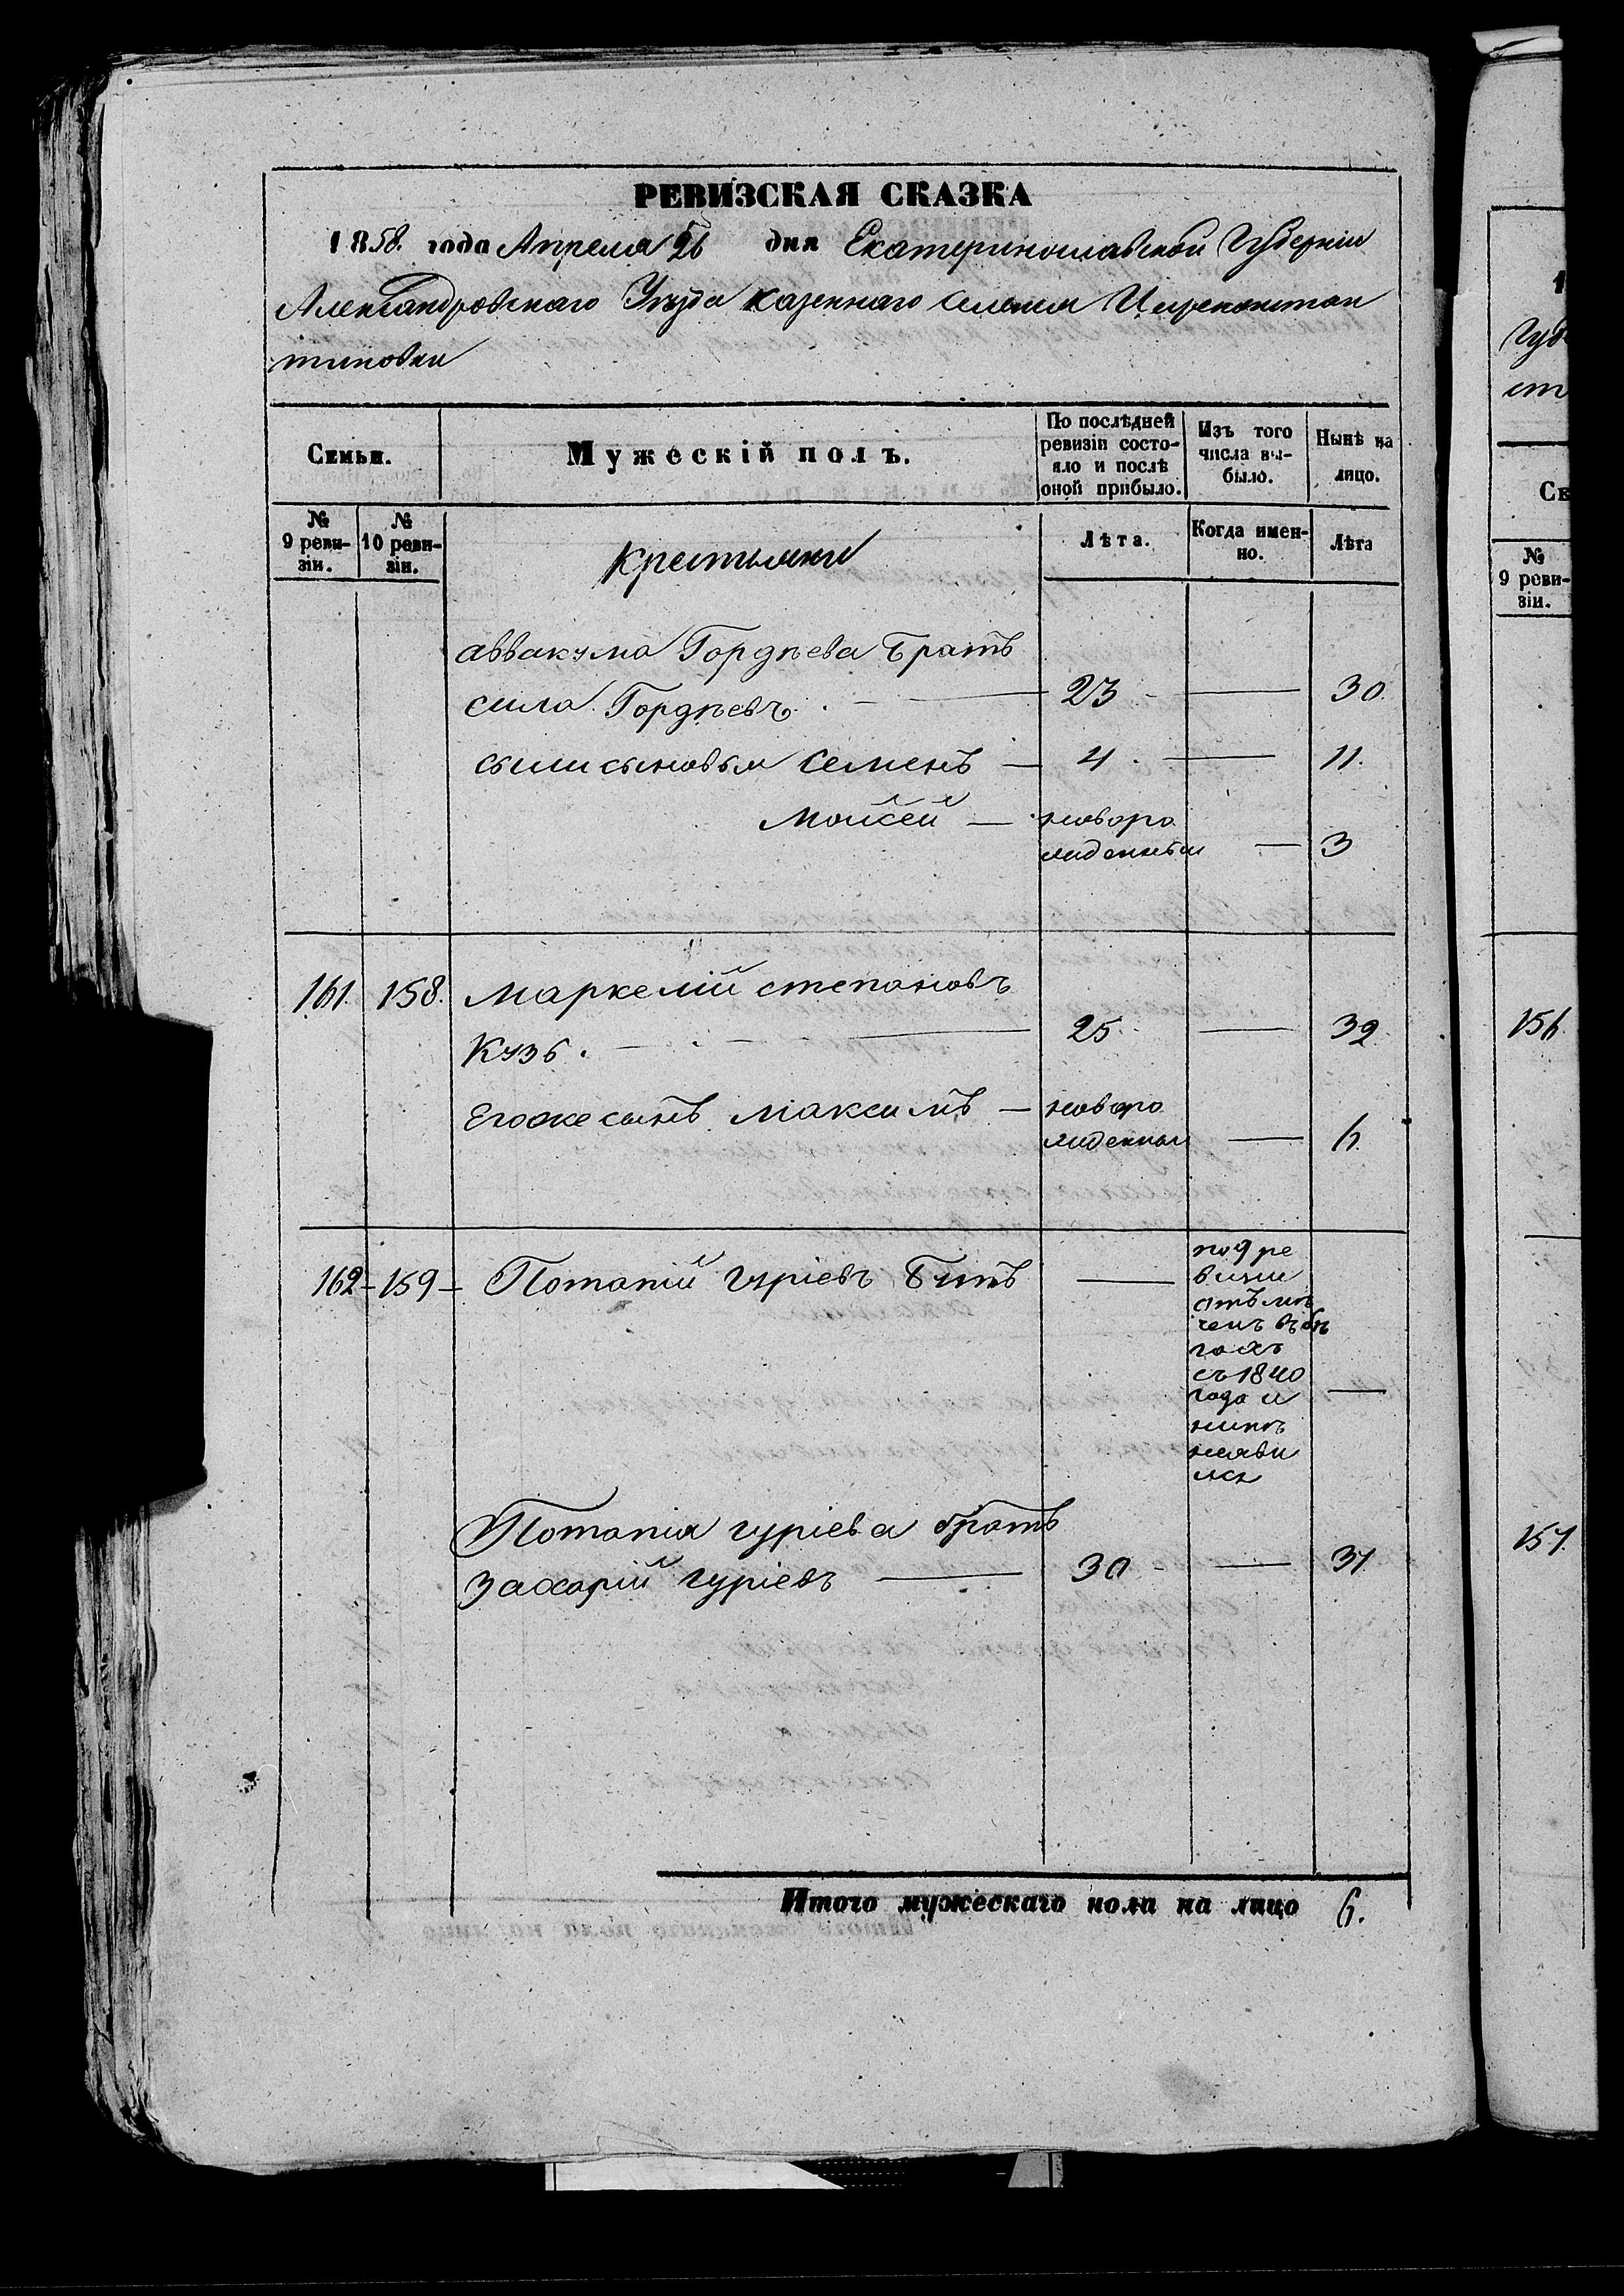 РЕВИЗСКАЯ СКАЗКА
1858. года Апреля 26 дня Екатеринославской Губерніи
Александровскаго Уѣзда казеннаго селенія Цареконстан
тиновки
Семьи.
Мужескій полъ.
По послѣдней ревизіи состо-
яло и послѣ
оной прибыло.
Изъ того
числа вы-
было.
Нынѣ на
лицо.
№
9 реви-
зіи.
№
10 реви-
зіи.
крестьяни
Лѣта.
Когда имен-
но.
Лѣта
аввакума Гордѣева братъ
сила Гордѣевъ. 23 30.
силы сыновья Семенъ 4 11.
Моисей новоро
жденный 3
161. 158. Маркелій степановъ
Кузб. 25 32
Егоже сынъ Максимъ новоро
жденный 6.
162 159 Потапій гуріевъ Битъ
по 9 ре
визіи
отъ мѣ
ченъ въ бѣ
гахъ
съ 1840
года и
нынѣ
неяви
лся
Потапія гуріева братъ
Захарій гуріевъ 30 37
Итого мужескаго пола на лицо 6.
1
Губ
ст
Се
№
9 реви-
зіи.
156.
157.